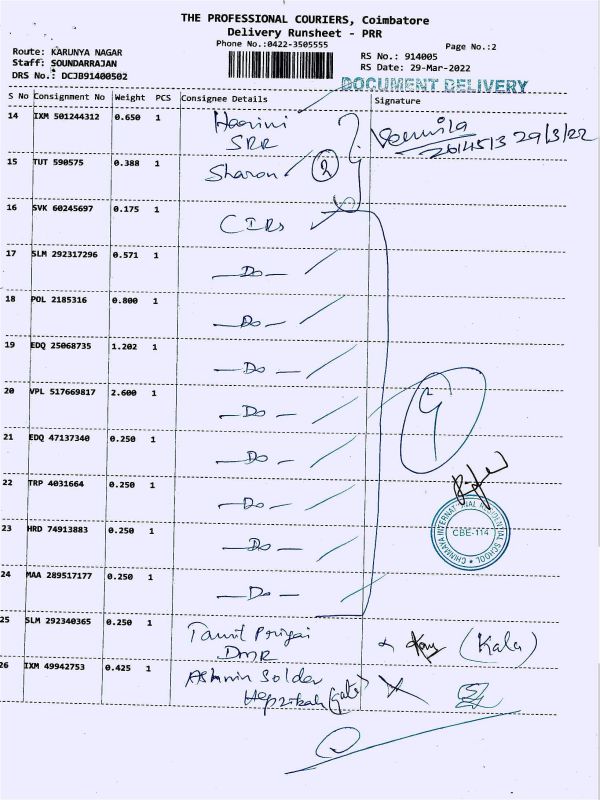 THE PROFESSIONAL COURIERS, Coimbatore
Delivery Runsheet - PRR
Phone No.:0422-3505555
Page No.:2
Route: KARUNYA NAGAR
Staff: SOUNDARRAJAN
DRS No.: DCJB91400502
RS No.: 914005
RS Date: 29-Mar-2022
DOCUMENT DELIVERY
S No Consignment No Weight PCS Consignee Details Signature
14 IXM 501244312 0.650 1 Haarini
SRR
29/3/22
15 TUT 590575 0.388 1 Sharon 2
16 SVK 60245697 0.175 1 CIRs
17 SLM 292317296 0.571 1 — Do —
18 POL 2185316 0.800 1 — Do —
19 EDQ 25068735 1.202 1 — Do —
20 VPL 517669817 2.600 1 — Do —
21 EDQ 47137340 0.250 1 — Do —
22 TRP 4031664 0.250 1 — Do —
23 HRD 74913883 0.250 1 — Do —
CHINMAYA INTERNATIONAL RESIDENTIAL SCHOOL
CBE-114
24 MAA 289517177 0.250 1 — Do —
25 SLM 292340365 0.250 1 Tamil (Kala)
26 IXM 49942753 0.425 1